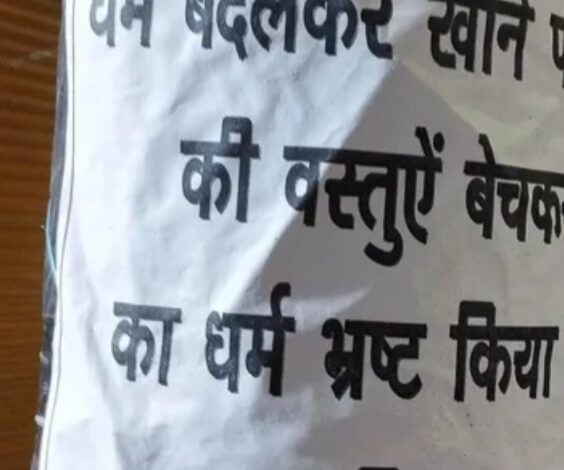 धर्म बदलकर खाने
की वस्तुऐं बेचकर
का धर्म भ्रष्ट किया